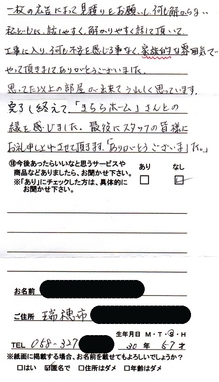 一枚の広告にて見積りをお願いし何も解からない
私どもに、話しやすく、解かりやすく話して頂いて、
工事に入り、何も不安を感じる事なく、家族的な雰囲気で
やって頂きましてありがとうございました。
思って以上の部屋が出来てうれしく思っています。
完了し終えて、「きらら ホーム」さんとの
縁を感じました。最後にスタッフの皆様に
お礼申し上げさせて頂きます。「ありがとうございました。」
⑱今後あったらいいなと思うサービスや
商品などありましたら、お聞かせ下さい。
※「あり」にチェックした方は、具体的に
お聞かせ下さい。
あり なし
お名前
ご住所 瑞穂市
生年月日 M・T・S・H
TEL 058-327 30年 57才
※紙面に掲載する場合、お名前を載せてもよろしいでしょうか?
□はい ☑匿名で □住所はダメ □年齢はダメ